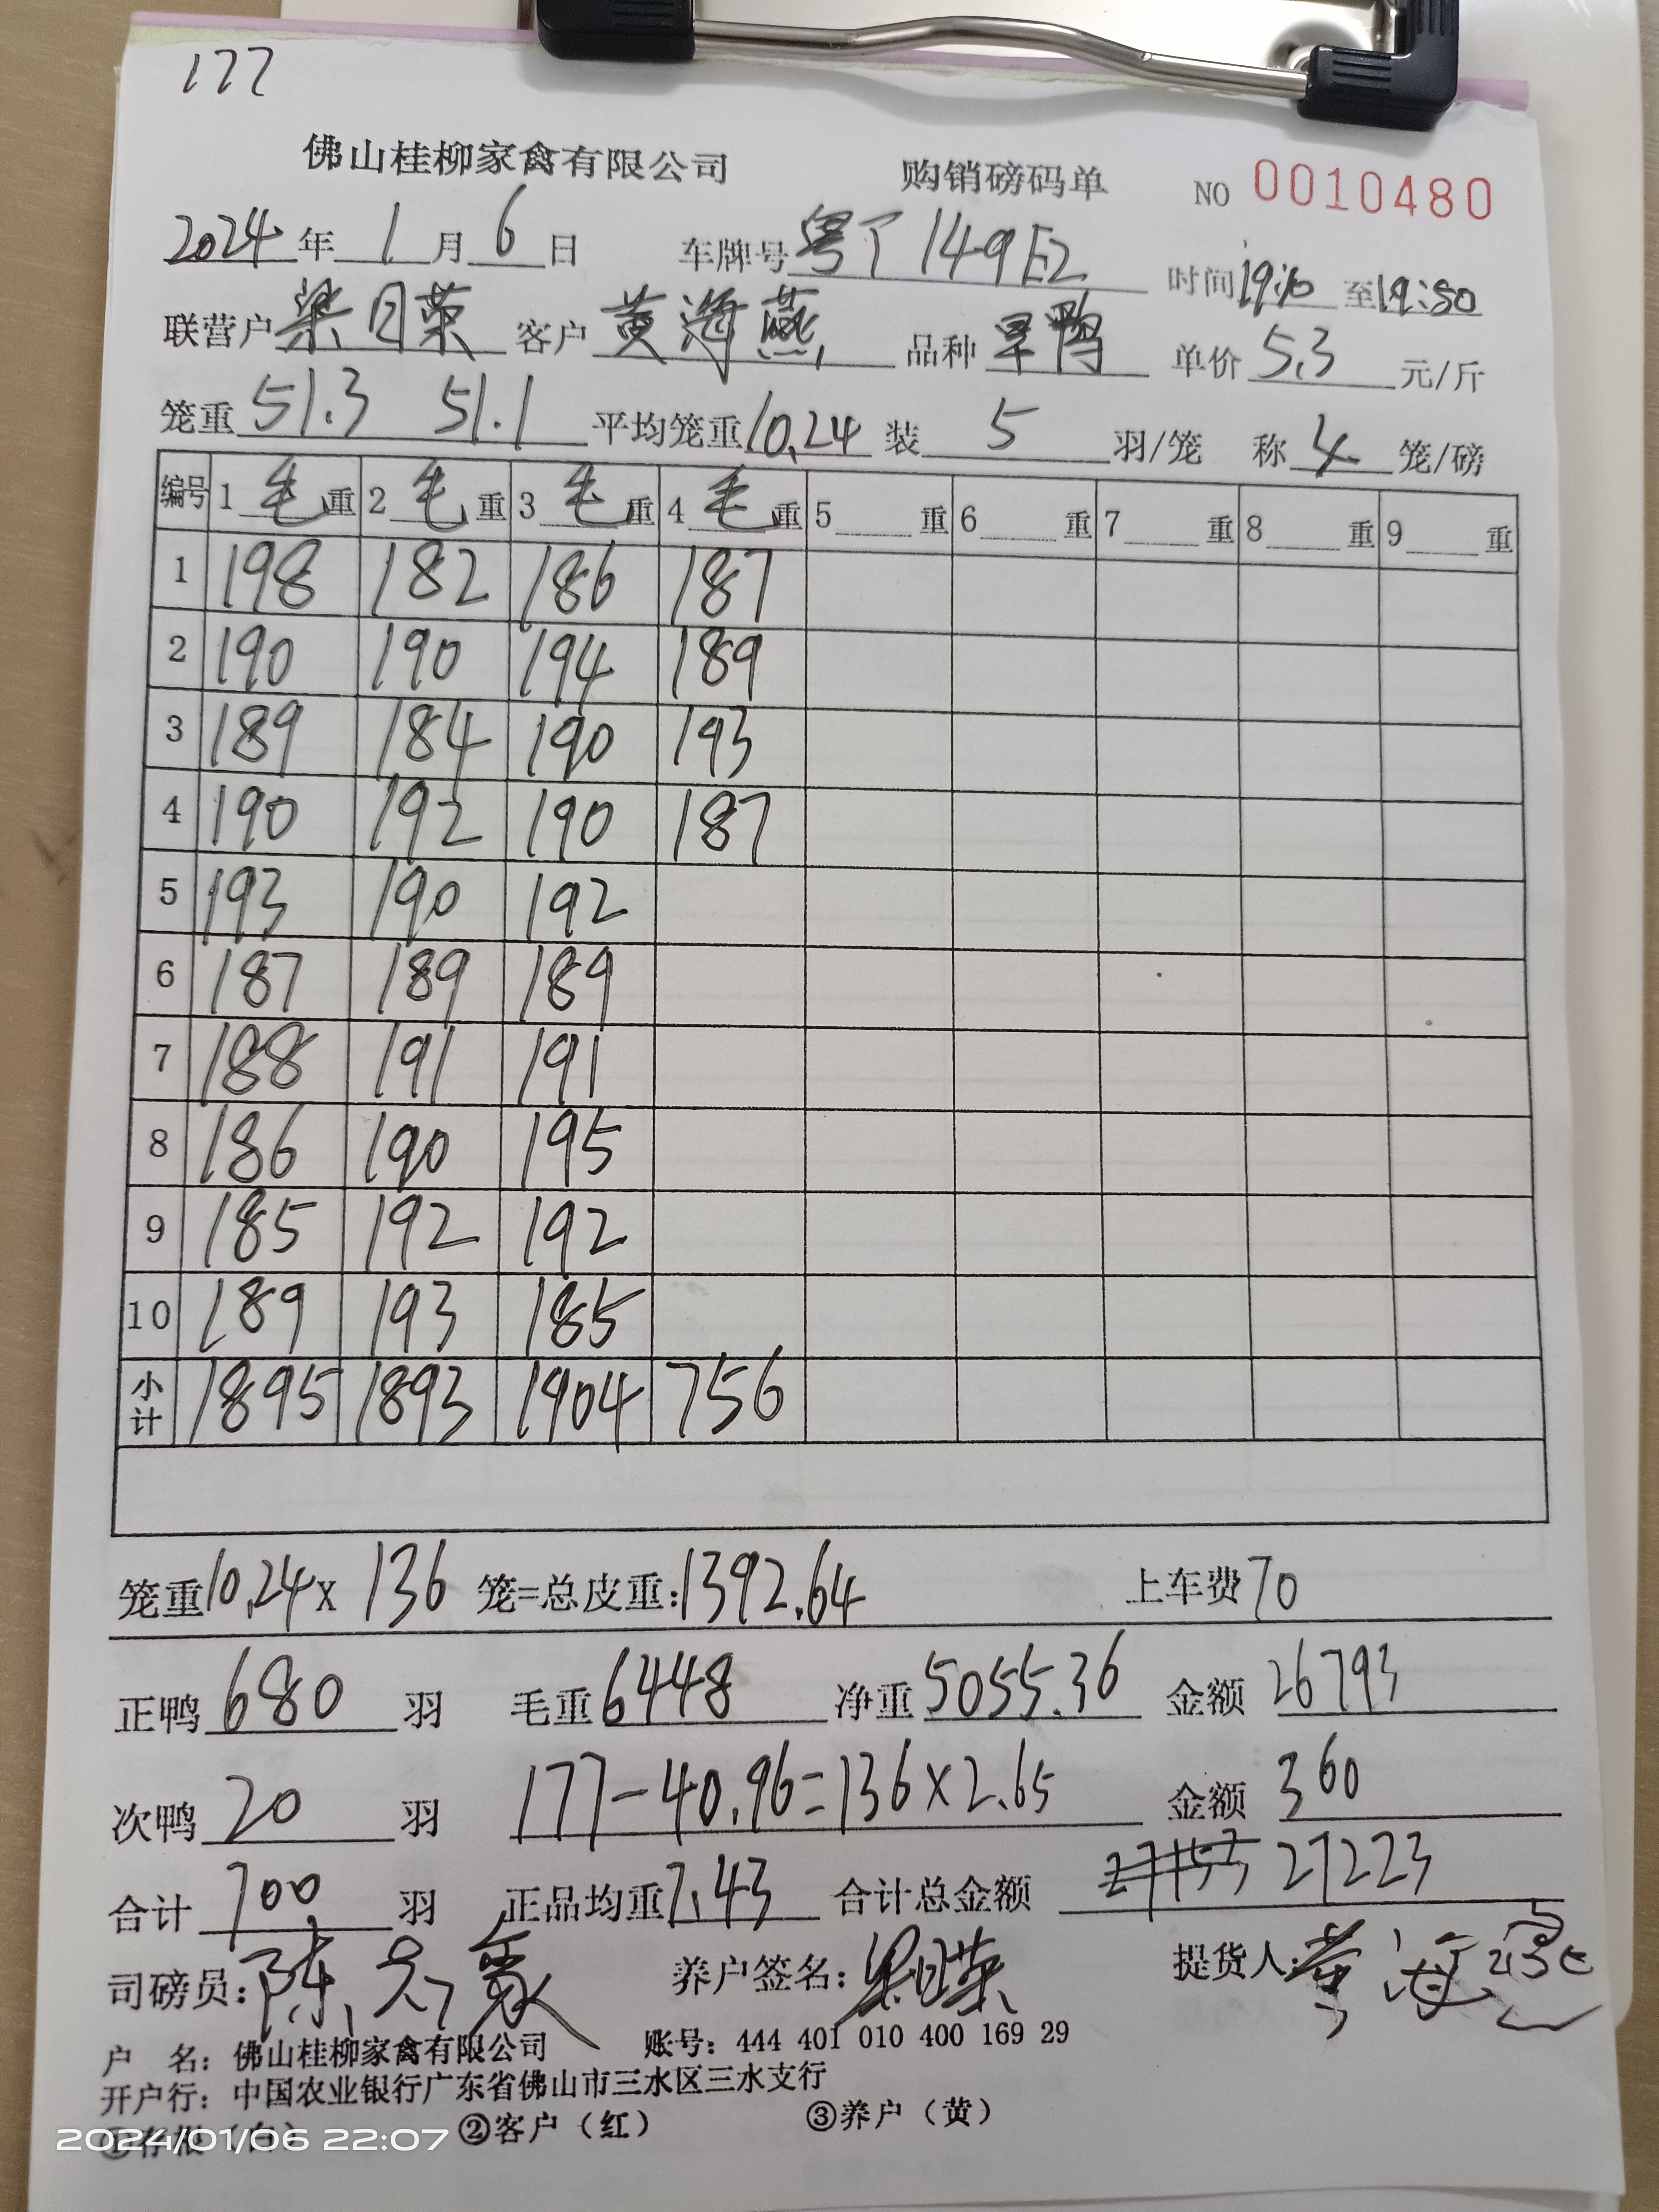 177
佛山桂柳家禽有限公司 购销磅码单 NO 0010480
2024年1月6日 车牌号 粤J149E2 时间19:10至19:50
联营户 梁日荣 客户 黄海燕 品种 旱鸭 单价 5.3 元/斤
笼重 51.3 51.1 平均笼重 10.24 装 5 羽/笼 称 4 笼/磅
编号 1 毛重 2 毛重 3 毛重 4 毛重 5 重 6 重 7 重 8 重 9 重
1 198 182 186 187
2 190 190 194 189
3 189 184 190 193
4 190 192 190 187
5 193 190 192
6 187 189 189
7 188 191 191
8 186 190 195
9 185 192 192
10 189 193 185
小计 1895 1893 1904 756
笼重10.24x 136 笼=总皮重:1392.64 上车费70
正鸭 680 羽 毛重 6448 净重 5055.36 金额 26793
次鸭 20 羽 177-40.96=136×2.65 金额 360
合计 700 羽 正品均重 7.43 合计总金额 27153 27223
司磅员: 陈 养户签名: 梁日荣 提货人: 黄海燕
户 名: 佛山桂柳家禽有限公司 账号: 444 401 010 400 169 29
开户行: 中国农业银行广东省佛山市三水区三水支行
①存根(白) ②客户(红) ③养户(黄)
2024/01/06 22:07